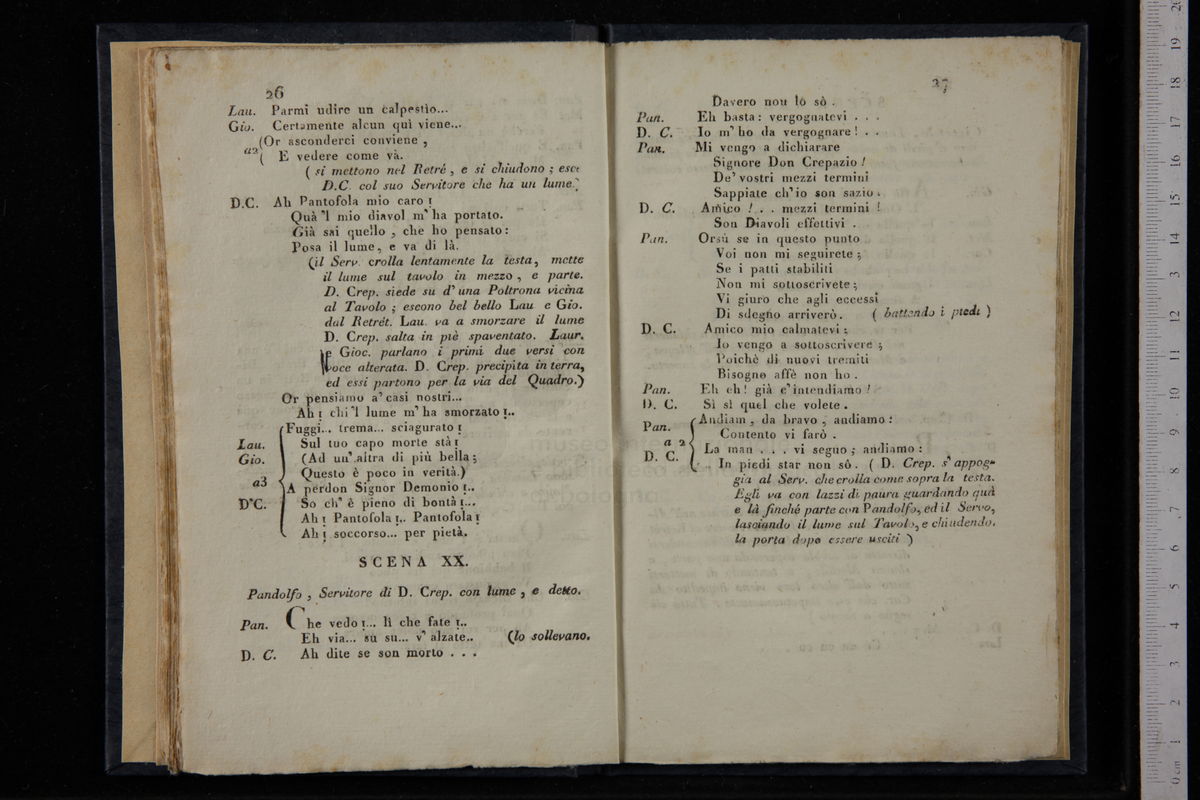 26
Lau. Parmi udire un calpestìo...
Gio. Certamente alcun quì viene...
a2 (Or asconderci conviene ,
( E vedere come và.
( si mettono nel Retré , e si chiudono ; esce
D.C. col suo Servitore che ha un lume.)
D.C. Ah Pantofola mio caro !
Quà 'l mio diavol m' ha portato.
Già sai quello , che ho pensato :
Posa il lume, e va di là.
(il Serv. crolla lentamente la testa, mette
il lume sul tavolo in mezzo , e parte.
D. Crep. siede su d' una Poltrona vicina
al Tavolo ; escono bel bello Lau e Gio.
dal Retrét. Lau. va a smorzare il lume
D. Crep. salta in piè spaventato. Laur.
e Gioc. parlano i primi due versi con
voce alterata. D. Crep. precipita in terra,
ed essi partono per la via del Quadro.)
Or pensiamo a' casi nostri...
Ah ! chi 'l lume m' ha smorzato !..
Fuggi... trema... sciagurato !
Lau. Sul tuo capo morte stà !
Gio. (Ad un' altra di più bella ;
Questo è poco in verità.)
a3 A perdon Signor Demonio !..
D. C. So ch' è pieno di bontà !...
Ah ! Pantofola !.. Pantofola !
Ah ! soccorso... per pietà.
SCENA XX.
Pandolfo , Servitore di D. Crep. con lume , e detto.
Pan. Che vedo !... lì che fate !..
Eh via... su su... v' alzate.. (lo sollevano.
D. C. Ah dite se son morto . . .
27
Davero non lo sò .
Pan. Eh basta : vergognatevi . . .
D. C. Io m' ho da vergognare ! . .
Pan. Mi vengo a dichiarare
Signore Don Crepazio !
De' vostri mezzi termini
Sappiate ch' io son sazio .
D. C. Amico ! . . mezzi termini !
Son Diavoli effettivi .
Pan. Orsù se in questo punto
Voi non mi seguirete ;
Se i patti stabiliti
Non mi sottoscrivete ;
Vi giuro che agli eccessi
Di sdegno arriverò . ( battendo i piedi )
D. C. Amico mio calmatevi ;
Io vengo a sottoscrivere ;
Poichè di nuovi tremiti
Bisogno affè non ho .
Pan. Eh eh ! già c' intendiamo !
D. C. Sì sì quel che volete .
Pan. Andiam , da bravo , andiamo :
Contento vi farò .
a 2
D. C. La man . . . vi seguo ; andiamo :
In piedi star non sò . ( D. Crep. s' appog-
gia al Serv. che crolla come sopra la testa.
Egli va con lazzi di paura guardando quà
e là finché parte con Pandolfo, ed il Servo,
lasciando il lume sul Tavolo, e chiudendo.
la porta dopo essere usciti )